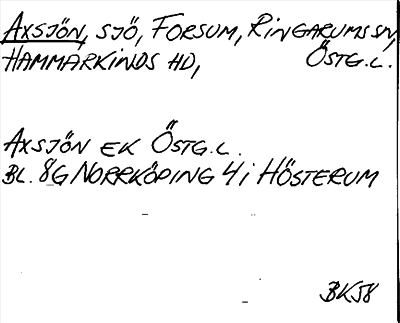 AXSJÖN, SJÖ, FORSUM, RINGARUMS SN,
HAMMARKINDS HD, ÖSTG.L.
AXSJÖN EK ÖSTG.L.
BL. 8G NORRKÖPING 4i HÖSTERUM
BK58